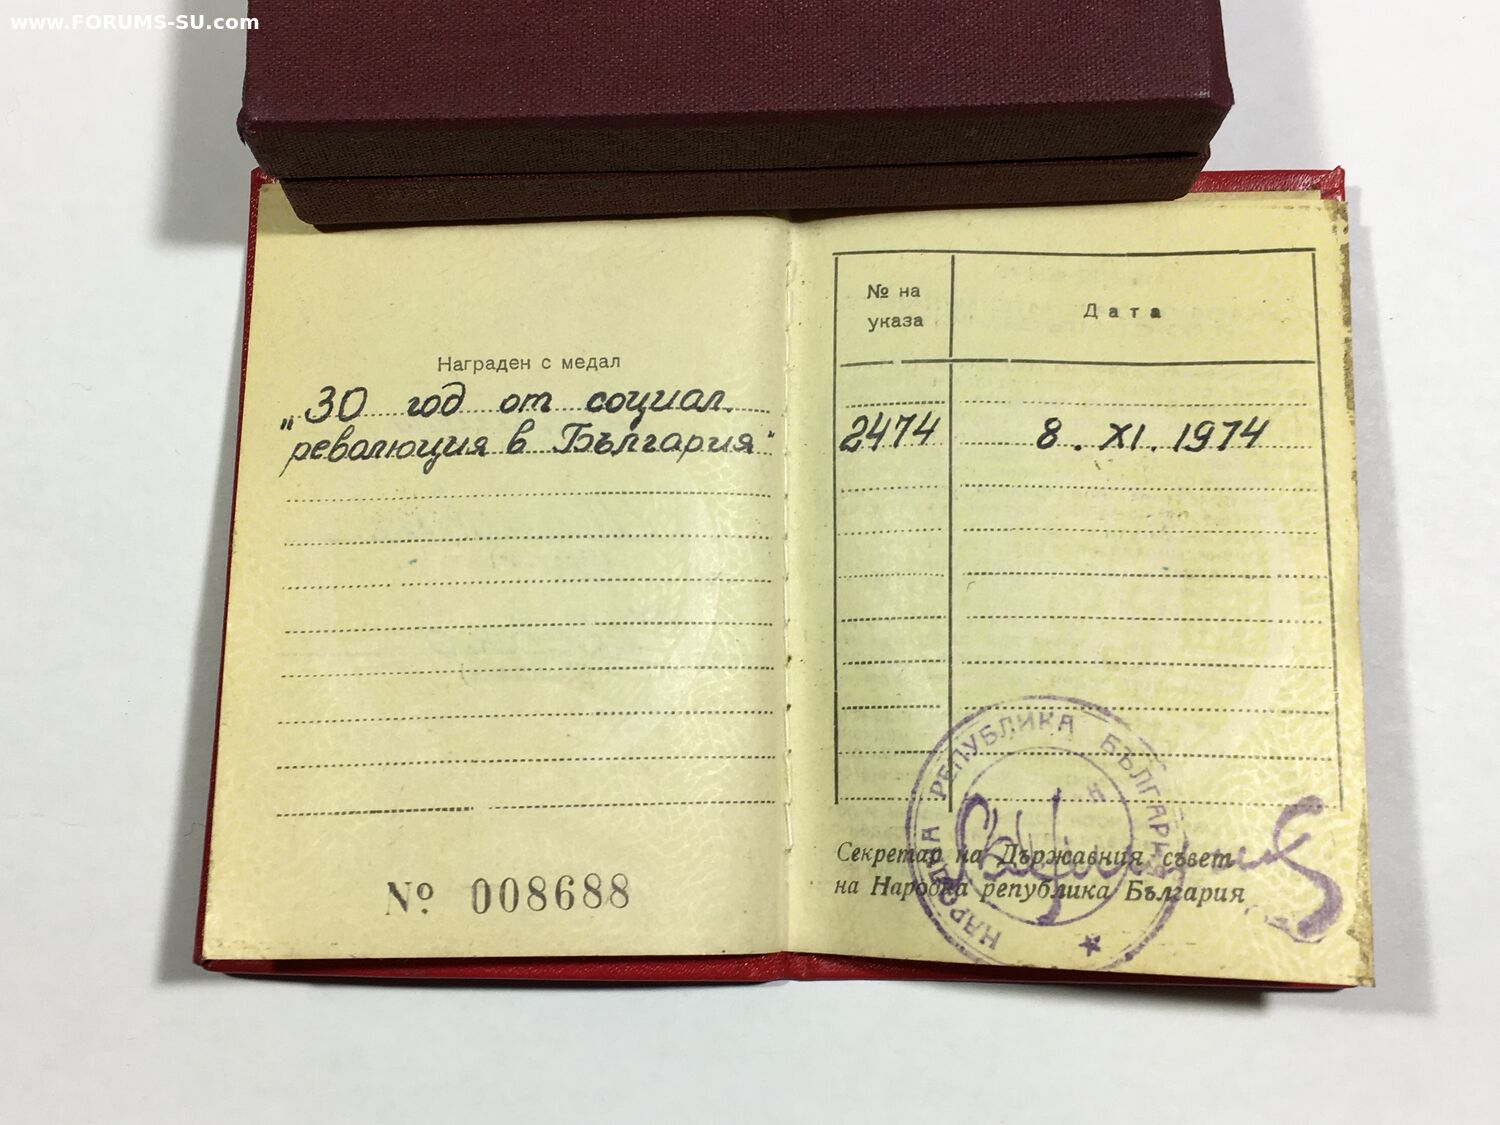 www.FORUMS-SU.com
Награден с медал
„30 год от социал.
революция в България"
№ 008688
№ на
указа
Дата
2474
8.XI.1974
НАРОДНА РЕПУБЛИКА БЪЛГАРИЯ
Секретар на Държавния съвет
на Народна република България